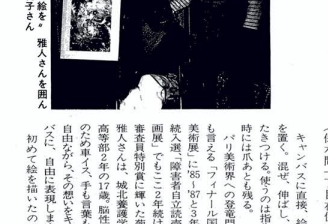 絵を〟 雅人さんを囲ん
子さん
キャンバスに直接、絵
を置く。混ぜ、伸ば
たきつける。使うのは指
時には爪あとも残る。
パリ美術界への登竜門
も言える「フィナール国
美術展」に'85〜'87と3年
続入選。「障害者自立読売
画展」でもここ2年続け
審査員特別賞に輝いた藤
雅人さんは、城北養護学
高等部2年の17歳。脳性ま
のため車イス、手も言葉も
自由ながら、その想いをキ
バスに、自由に表現しま
初めて絵を描いたの